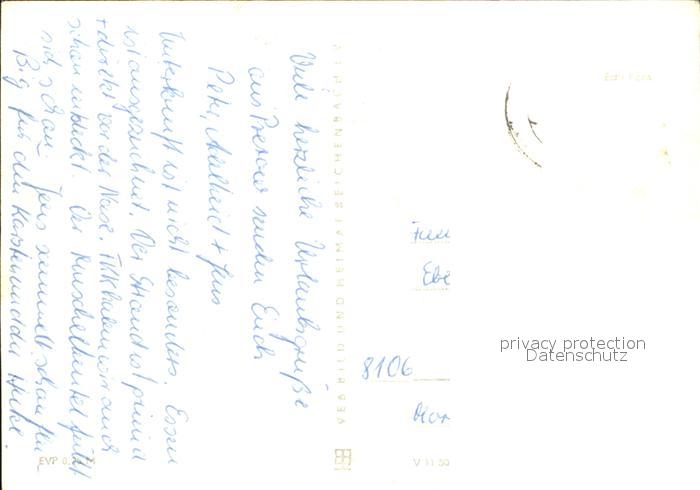 Viele herzliche Urlaubsgrüße
aus Prerow senden Euch
Peter, Adelheid + Jens
Unterkunft ist nicht besonders. Essen
ist ausgezeichnet. Der Strand ist prima
+ direkt vor der Nase. FKK haben wir auch
schon entdeckt. Der
sich schon. Jens sammelt schon
für den Karsten und die Heike.
VEB BILD UND HEIMAT REICHENBACH
Echt Foto
8106
EVP 0,
V 11 50
privacy protection
Datenschutz